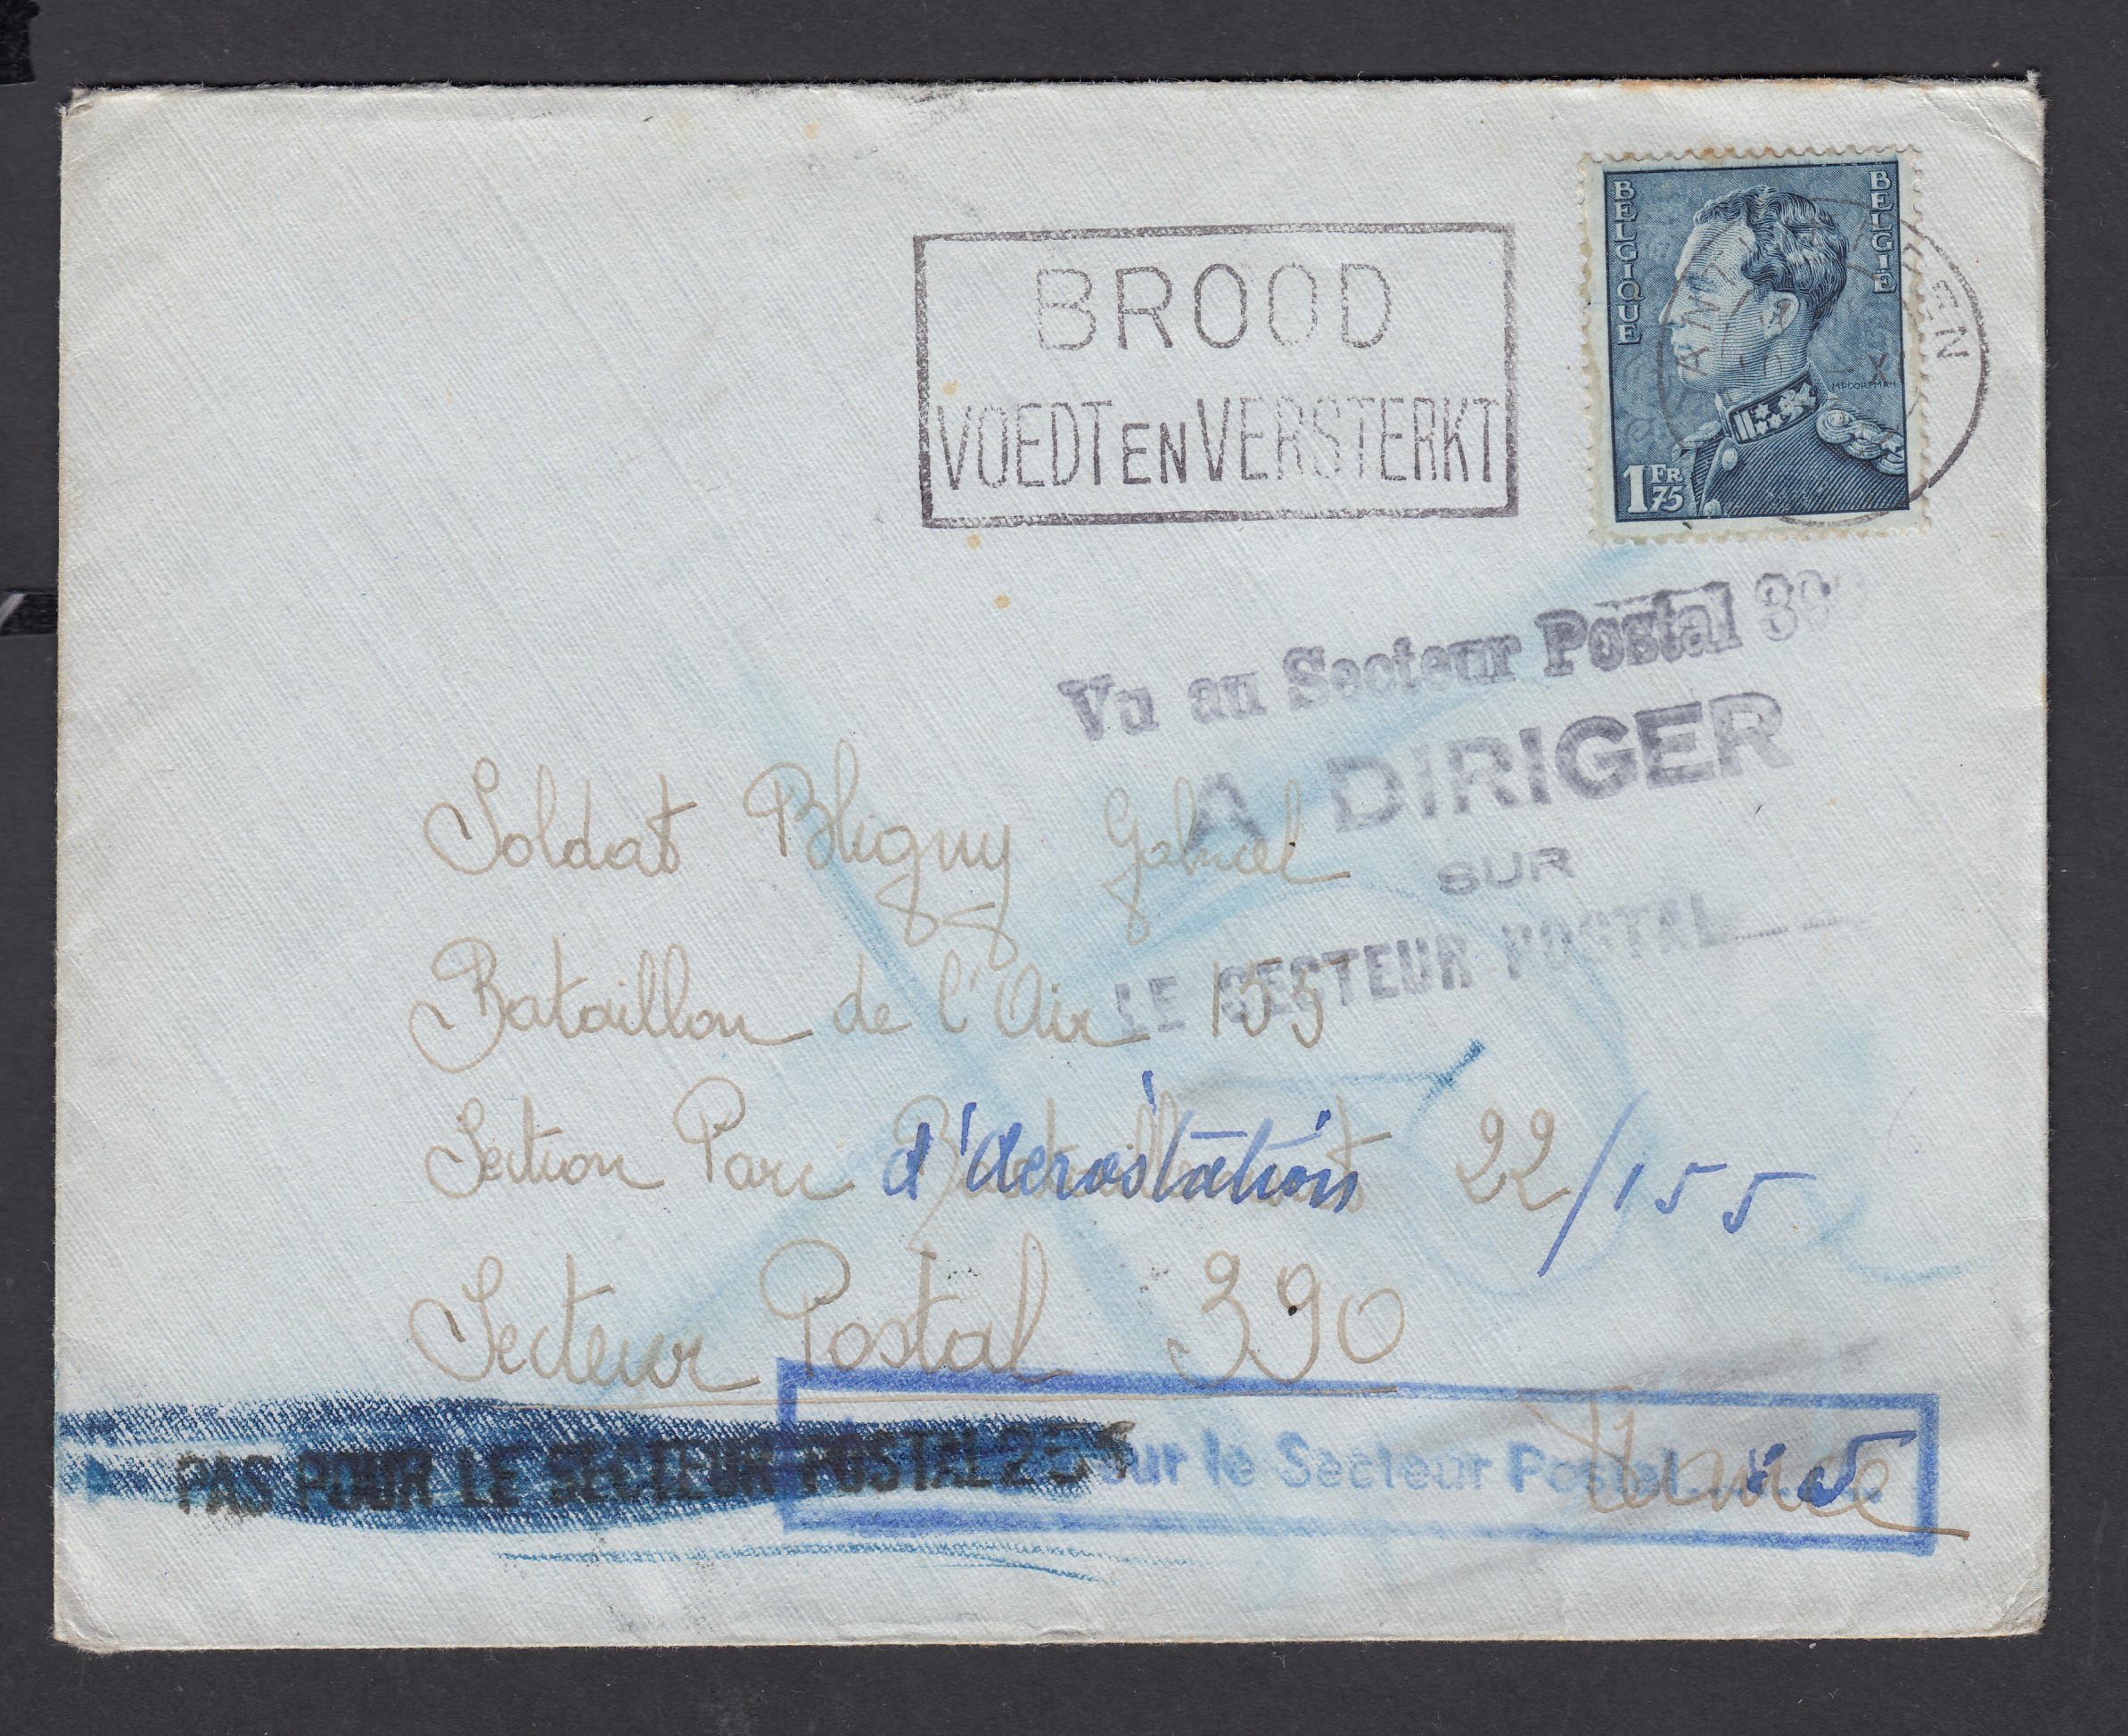 BROOD
VOEDT EN VERSTERKT
BELGIQUE
BELGIE
1 FR 75
Vu au Secteur Postal 390
A DIRIGER
SUR
LE SECTEUR POSTAL
Soldat Bligny Gabriel
Bataillon de l'Air 155
Section Parc d'Aerostation 22/155
Secteur Postal 390
France
PAS POUR LE SECTEUR POSTAL 251
sur le Secteur Postal